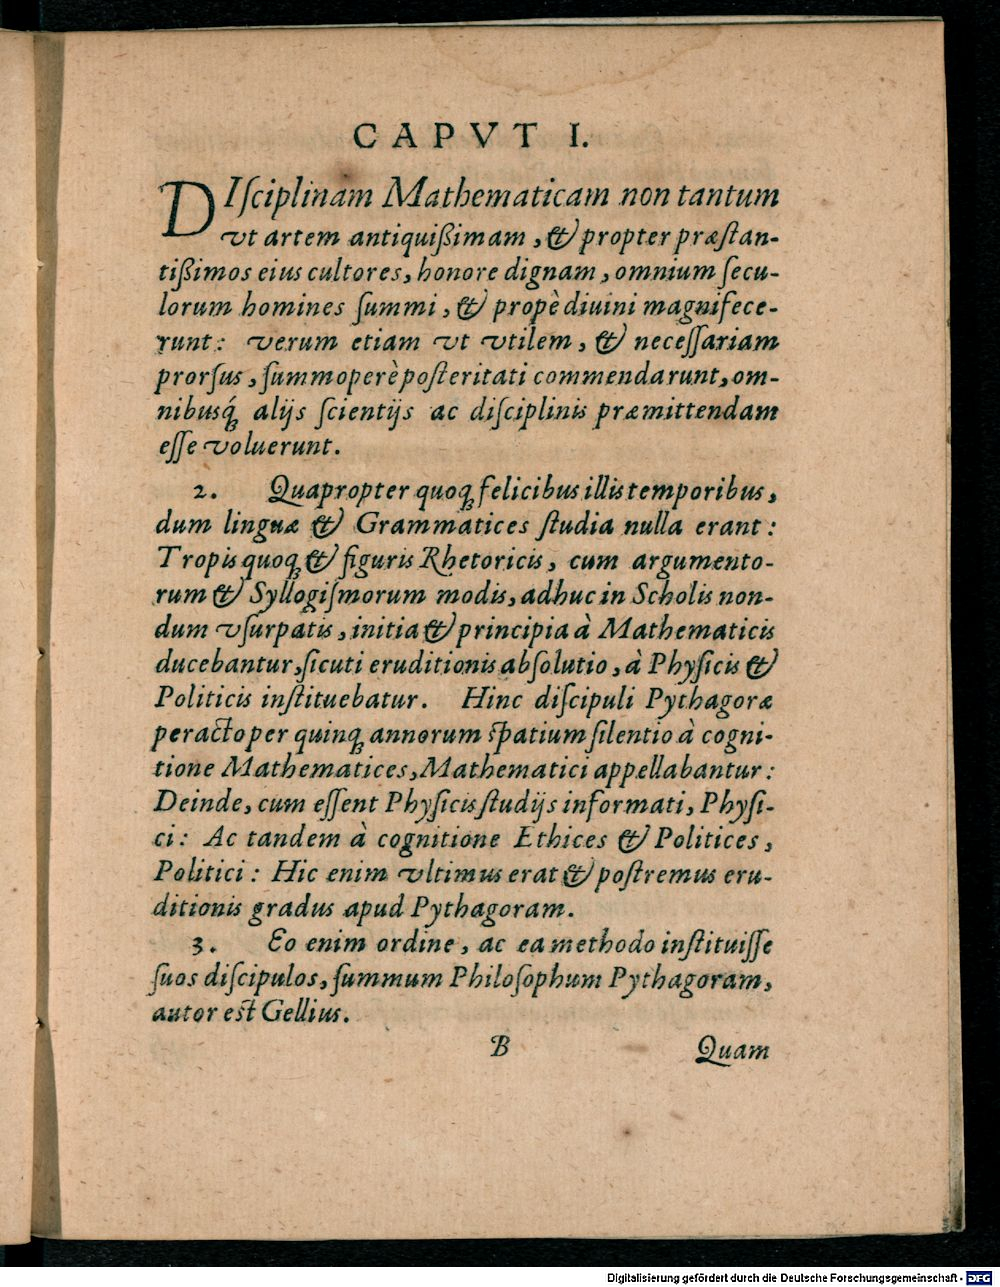 CAPVT I.
DIſciplinam Mathematicam non tantum
vt artem antiquißimam, & propter præſtan-
tißimos eius cultores, honore dignam, omnium ſecu-
lorum homines ſummi, & propè diuini magnifece-
runt: verum etiam vt vtilem, & neceſſariam
prorſus, ſummoperè poſteritati commendarunt, om-
nibusq́ꝫ alijs ſcientijs ac diſciplinis præmittendam
eſſe voluerunt.
2. Quapropter quoqꝫ felicibus illis temporibus,
dum linguæ & Grammatices ſtudia nulla erant:
Tropis quoqꝫ & figuris Rhetoricis, cum argumento-
rum & Syllogiſmorum modis, adhuc in Scholis non-
dum vſurpatis, initia & principia à Mathematicis
ducebantur, ſicuti eruditionis abſolutio, à Phyſicis &
Politicis inſtituebatur. Hinc diſcipuli Pythagoræ
peracto per quinqꝫ annorum ſpatium ſilentio à cogni-
tione Mathematices, Mathematici appellabantur:
Deinde, cum eſſent Phyſicis ſtudijs informati, Phyſi-
ci: Ac tandem à cognitione Ethices & Politices,
Politici: Hic enim vltimus erat & poſtremus eru-
ditionis gradus apud Pythagoram.
3. Eo enim ordine, ac ea methodo inſtituiſſe
ſuos diſcipulos, ſummum Philoſophum Pythagoram,
autor eſt Gellius.
B Quam
Digitalisierung gefördert durch die Deutsche Forschungsgemeinschaft - DFG